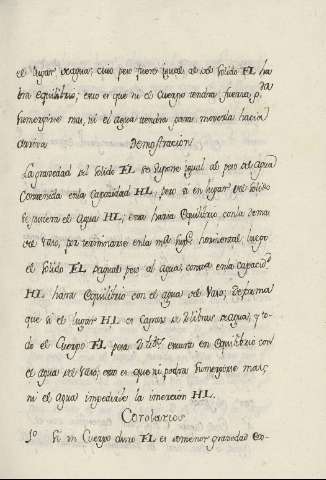 el lugar de agua, cuio peso fuere igual al del solido FL ha
bra equilibrio; esto es que ni el cuerpo tendra fuerza p.ª
sumergirse mas, ni el agua para moverla hacia
arriva Demostracion
La gravedad del solido FL se supone igual al peso del agua
Contenida en la Capacidad HL; pero si en lugar del solido
se pusiera el agua HL; esta haria equilibrio con la demas
del Vaso, por terminarse en la mis.ª horizontal, luego
el solido FL de igual peso al agua, en la capacid.
HL hara equilibrio con el agua del Vaso; De forma
que si el lugar HL es Capaz de D libras de agua, y to-
do el Cuerpo FL pesa D lib.s estara en equilibrio con
el agua del Vaso; esto es que ni podra sumergirse mas,
ni el agua impedirle la inmersion HL.
Corolarios
1.º Si un Cuerpo duro FL es de menor gravedad es-